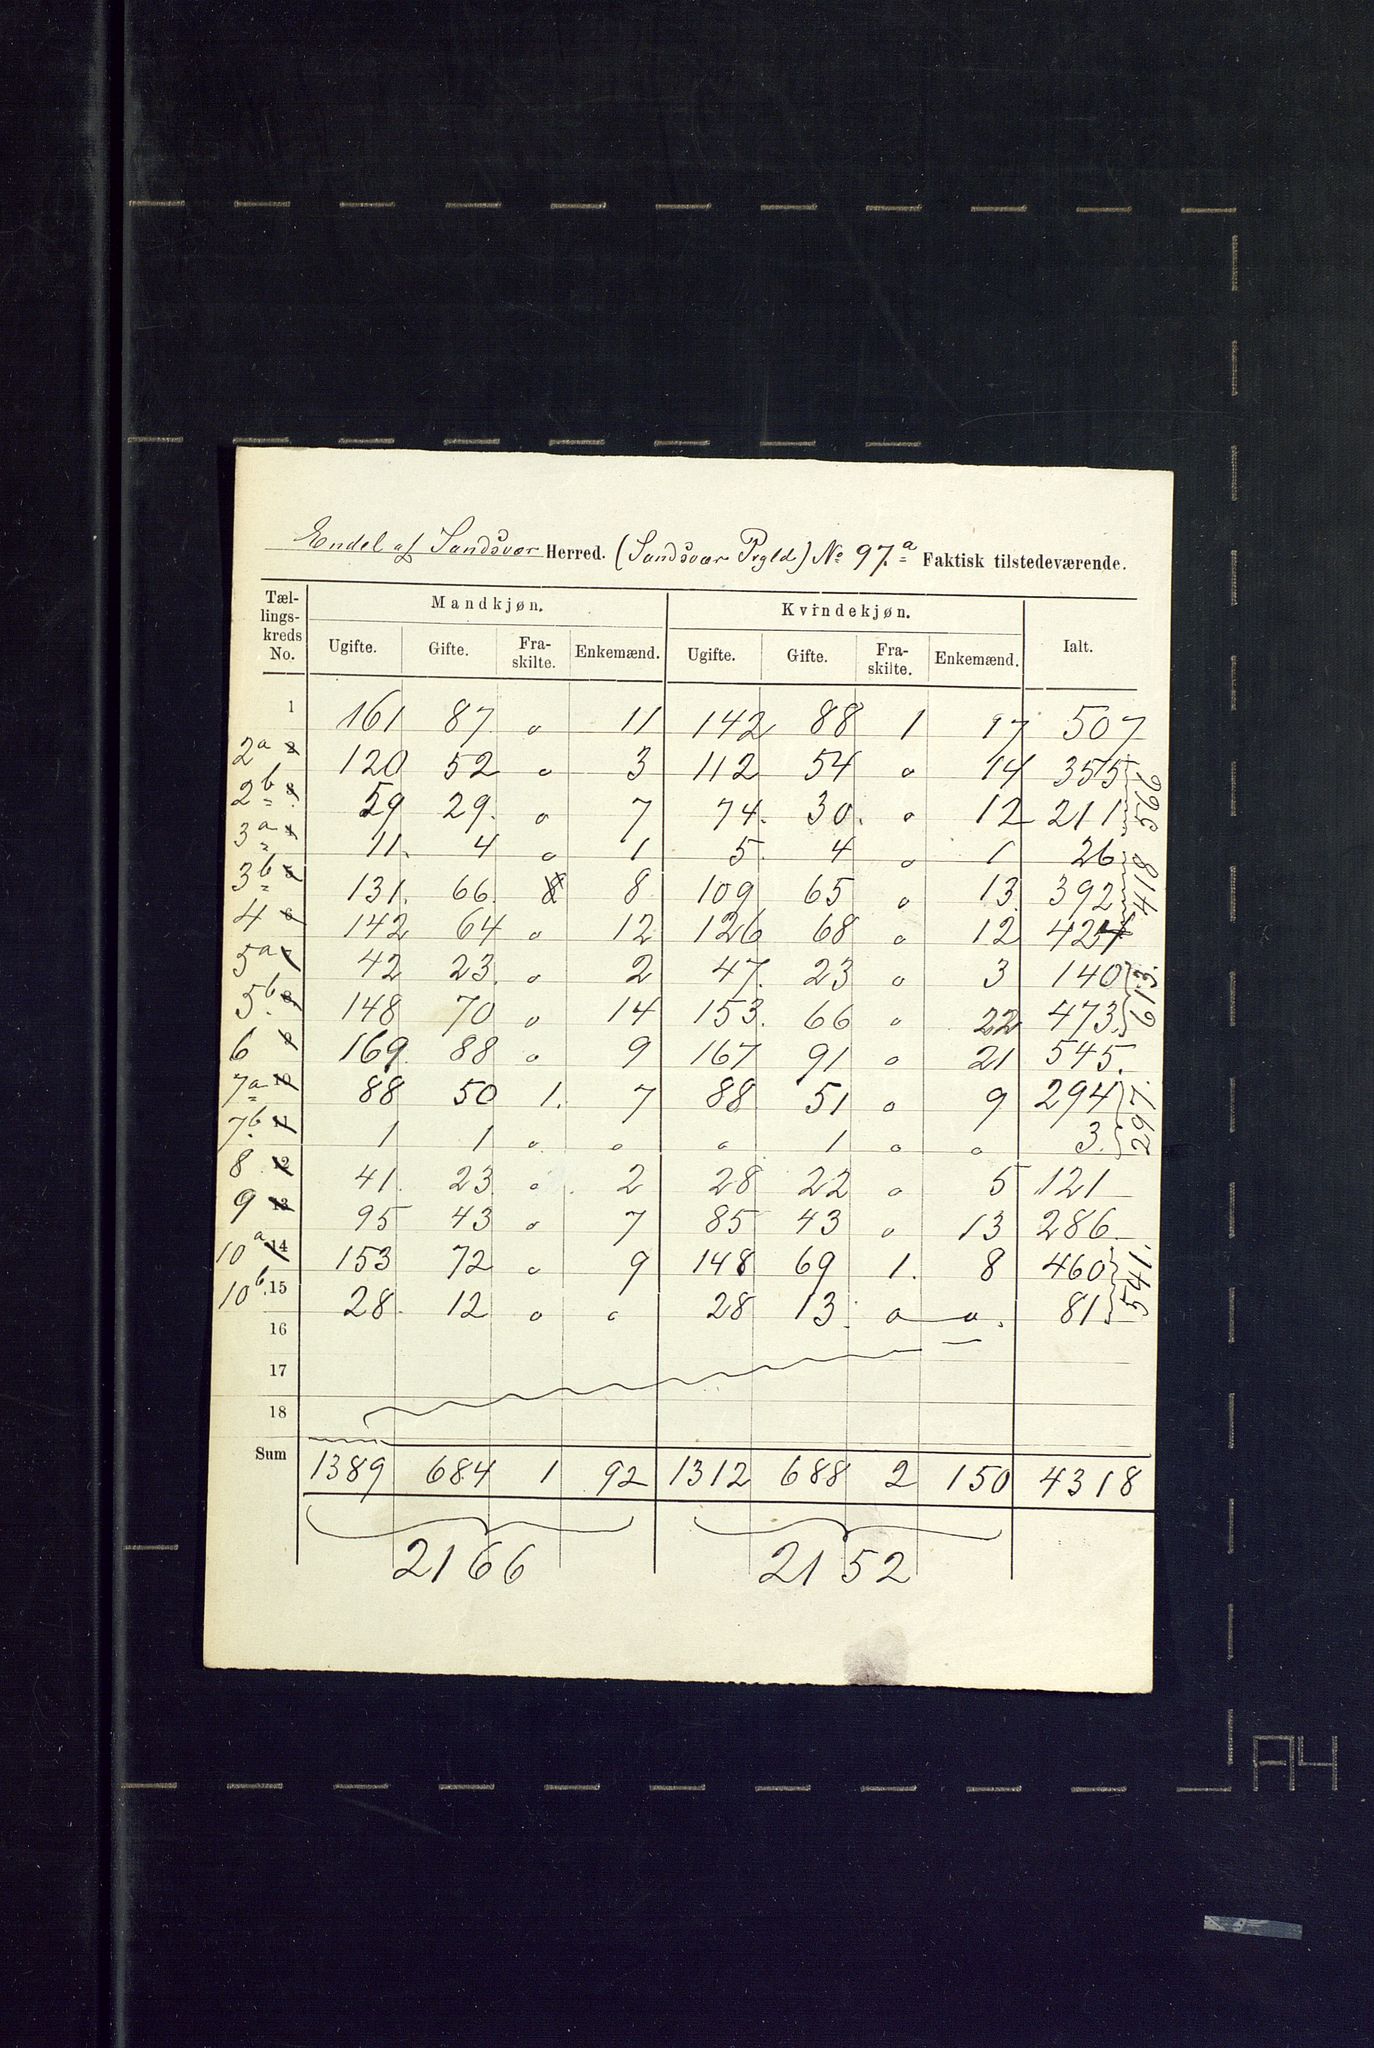 Endel af Sandsvær Herred. (Sandsvær Prgld) No 97.a Faktisk tilstedeværende.
Tællingskreds No. Mandkjøn. Kvindekjøn. Ialt.
Ugifte. Gifte. Fraskilte. Enkemænd. Ugifte. Gifte. Fraskilte. Enkemænd.
1 161 87 o 11 142 88 1 17 507
2a 2 120 52 o 3 112 54 o 14 355
2b 3 59 29. o 7 74. 30. o 12 211 566
3a 4 11. 4 o 1 5. 4 o 1 26
3b 5 131. 66. 8 109 65 o 13. 392 418
4 6 142 64 o 12 126 68 o 12 424
5a 7 42 23. o 2 47. 23 o 3 140
5b. 8 148 70 o 14 153. 66 o 22 473. 613.
6 9 169. 88 o 9 167 91 o 21 545.
7a 10 88 50 1. 7 88 51 o 9 294
7b. 11 1 1 o. o o 1 o o 3. 297.
8 12 41. 23. o 2 28 22 o 5 121
9 13 95 43 o 7 85 43 o 13 286.
10a 14 153 72 o 9 148 69 1. 8 460
10b. 15 28. 12 o o 28 13. o o. 81 541.
16
17
18
Sum 1389 684 1 92 1312 688 2 150 4318
2166 2152
A4